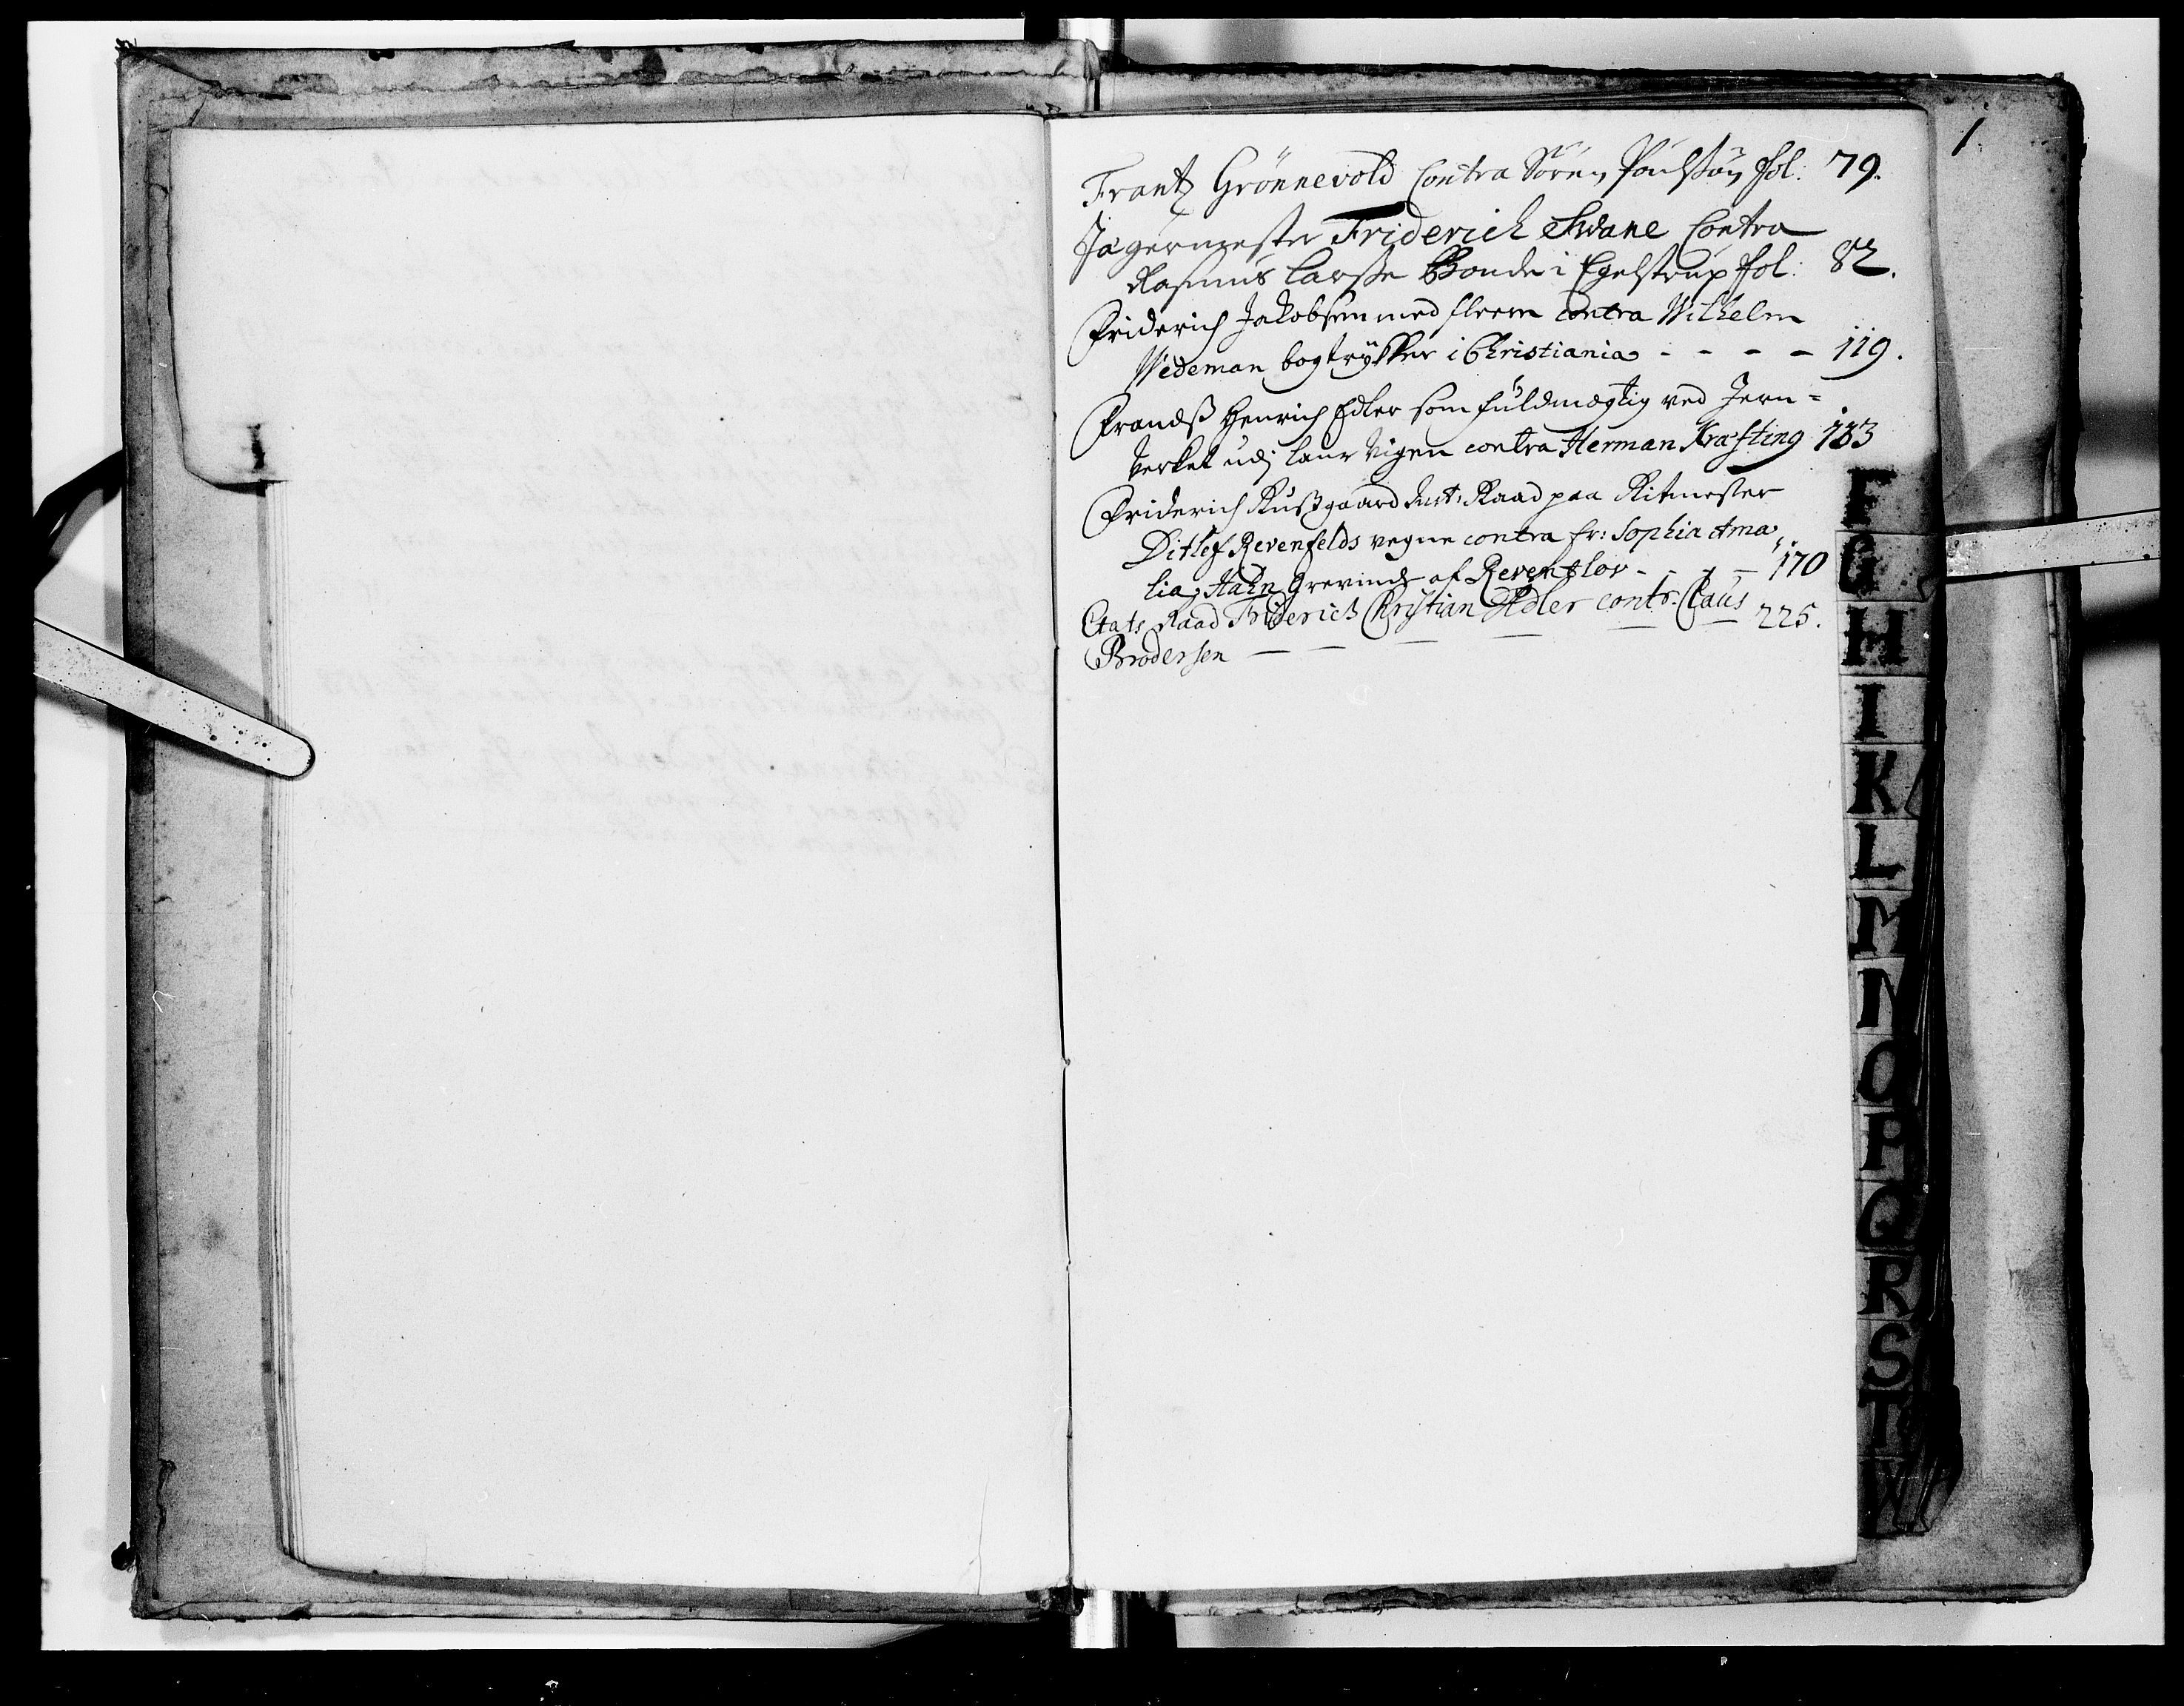 1.
Frantz Grönnevold Contra Sören Poulsøn fol: 79.
Jægermester Friderich Swane Contra
Rasmus Larsse Bonde i Egelstrup fol: 82.
Friderich Jakobsen med fleere contra Wilhelm
Wedeman bogtrykker i Christiania - - - - 119.
Frandss Henrich Edler som fuldmægtig ved Jern=
Verket udj Laur Vigen contra Herman Kræfting 133
Friderich Russgaard Raad paa Ritmester
Ditlef Revenfelds vegne contra fr: Sophia Ama
lia Hahn Grevinde af Reventlov - - - - 170
Etats Raad Friderich Christian Adler contr. Claus
Brodersen — — — — — 225.
F
G
H
I
K
L
M
N
O
P
Q
R
S
T
W